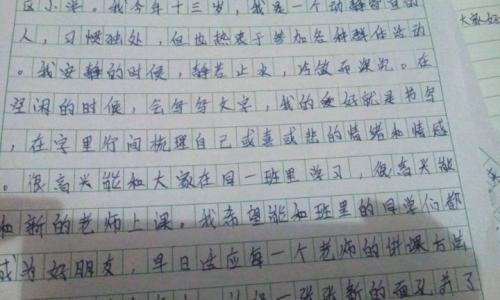 区小学。我今年十三岁,我是一个动静皆宜的
人,习惯独处,但也热衷于参加各种群体活动
。我安静的时候,静若止水,冷傲而深沉。在
空闲的时候,会写写文字,我的爱好就是书写
,在字里行间梳理自己或喜或悲的情绪和情感
。很高兴能和大家在同一班里学习,很高兴能
和新的老师上课。我希望能和班里的同学们都
成为好朋友,早日适应每一个老师的讲课方法
一张张新的面孔并了
大家好